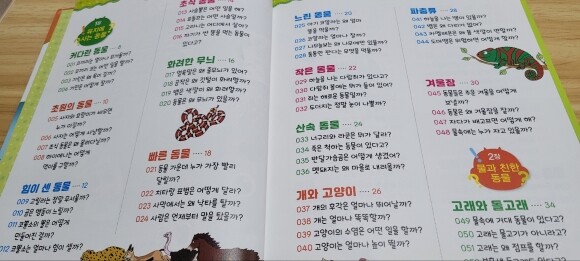 1장
육지에 사는 동물
커다란 동물 8
초원의 동물 10
005 사자와 호랑이가 싸우면
누가 이길까?
006 사자는 어떻게 사냥할까?
007 초식 동물은 왜
008 하이에나는 어떻게
힘이 센 동물 12
009 고릴라는 정말 무서울까?
010 곰은 영웅이
011 코뿔소의 뿔은 어떻게
만들어진 걸까?
012 코뿔소는 얼마나 힘이 셀까?
초식 동물
013
014
015
016 자기가 싼 똥을 먹는 동물이
있다고?
화려한 무늬 16
017 얼룩말은 왜 줄무늬가 있어?
018 공작은 왜 깃털이 화려할까?
019 뱀은 색깔이 왜 화려할까?
020 동물은 왜 무늬가 있을까?
빠른 동물 18
021 동물 가운데 누가 가장 빨리
달릴까?
022 치타랑 표범은 어떻게 달라?
023 사막에서는 왜 낙타를 탈까?
024 사람은 언제부터 말을 탔을까?
느린 동물 20
025
026 코알라는 얼마나 잘까?
027 나무늘보는 왜 나무에만 있을까?
028
작은 동물 22
029 하늘을 나는 다람쥐가 있다고?
030 다람쥐 볼에는 뭐가 들어 있어?
031 쥐는 해로운 동물일까?
032 두더지는 정말 눈이 나쁠까?
산속 동물 24
033 너구리와 라쿤은 뭐가 달라?
034 죽은 척하는 동물이 있다고?
035 반달가슴곰은 어떻게 생겼어?
036 멧돼지는 왜 마을로 내려올까?
개와 고양이 26
037 개의 후각은 얼마나 뛰어날까?
038 개는 얼마나 똑똑할까?
039 고양이의 수염은 어떤 일을 할까?
040 고양이는 얼마나 높이 뛸까?
파충류
041 하늘을 나는 뱀이 있을까?
042 뱀은 왜 다리가 없어?
043 카멜레온은 왜 몸 색깔이 변할까?
044 도마뱀은 위험하면 어떻게 할까?
겨울잠 30
045 동물들은 추운 겨울을 어떻게
보낼까?
046 동물은 왜 겨울잠을 잘까?
047 자다가 배고프면 어떻게 해?
048 물속에는 누가 자고 있을까?
2장
물과 친한 동물
고래와 돌고래 34
049 물속에 거대 동물이 있다고?
050 고래는 물고기가 아니라고?
051 고래는 왜 점프를 할까?